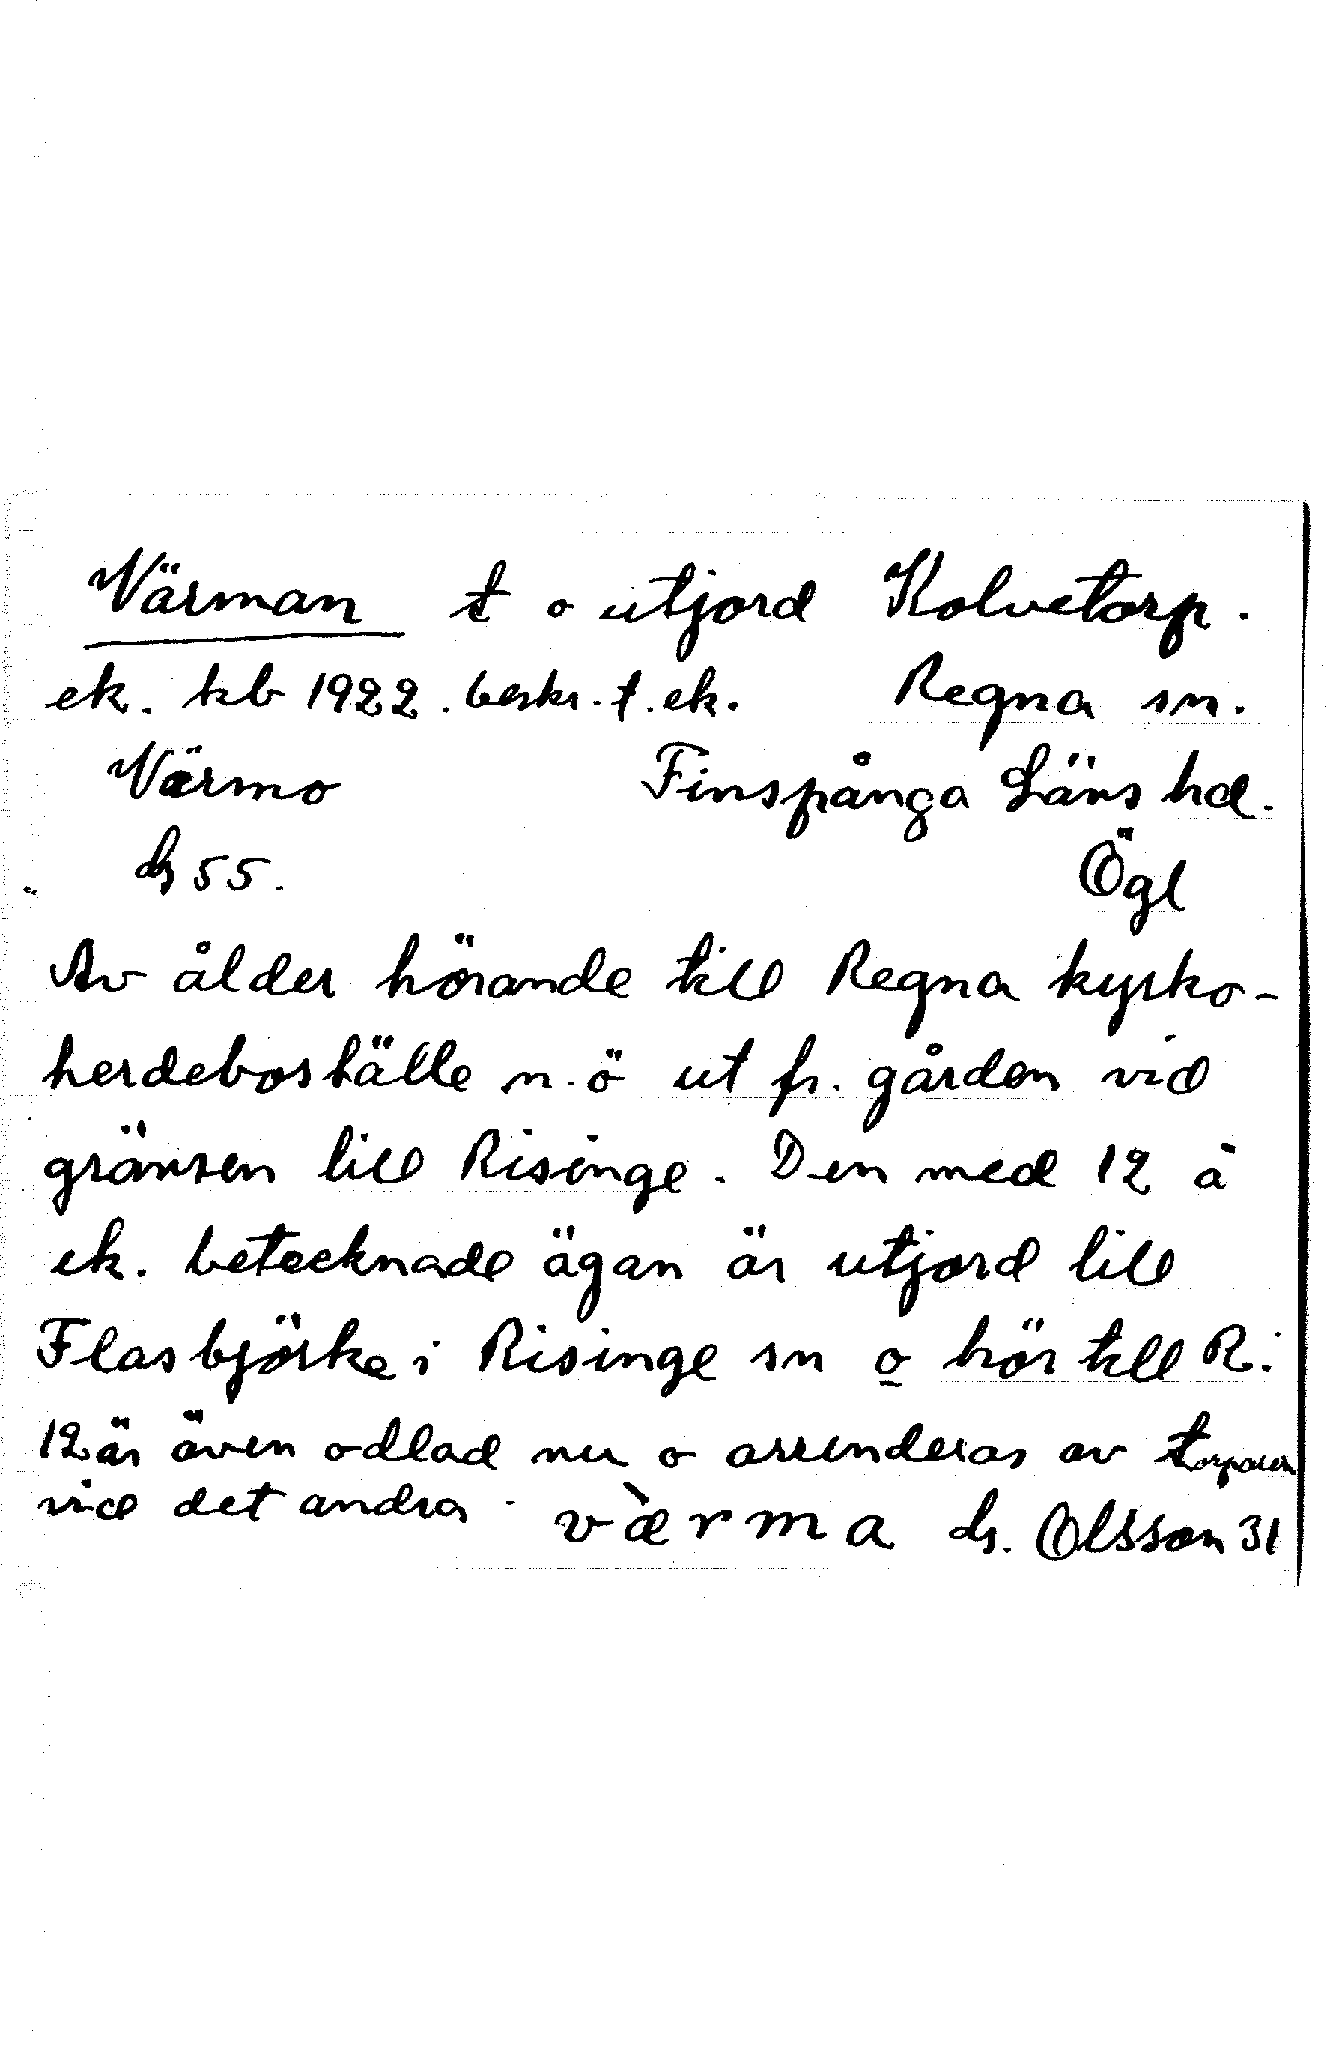 Värman t o utjord Kolvetorp.
ek. kb 1922. beskr. t. ek. Regna sn.
Värmo Finspånga Läns hd.
ds 55. Ögl
Av ålder hörande till Regna kyrko-
herdeboställe n. ö ut fr. gården vid
gränsen till Risinge. Den med 12 å
ek. betecknade ägan är utjord till
Flasbjörke i Risinge sn o hör till R.
12 är även odlad nu o arrenderas av torparen
vid det andra. værma ds. Olsson 31